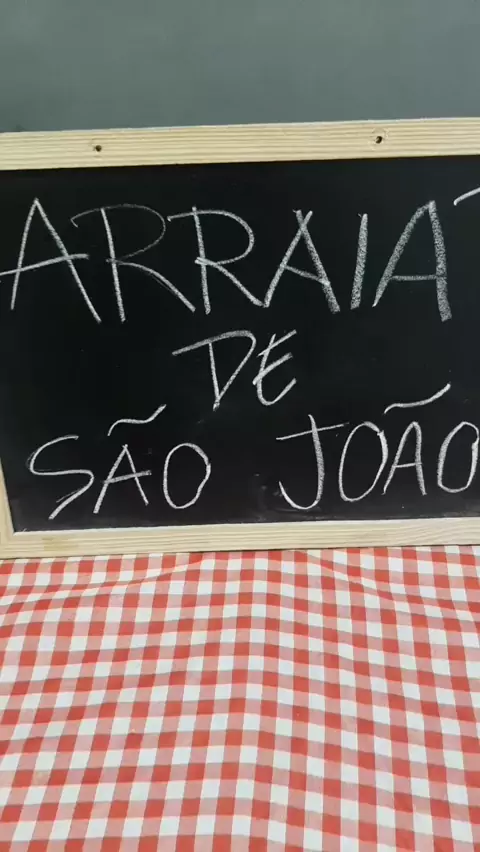 ARRAIÁ
DE
SÃO JOÃO